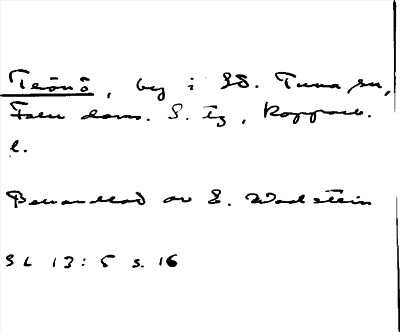 Tronö, by i St. Tuna sn,
Falu doms. S. tg, Kopparb.
l.
Behandlad av E. Wadstein
SL 13:5 s. 16